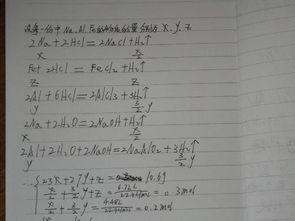 设每一份中Na、Al、Fe的物质的量分别为x、y、z
2Na+2HCl=2NaCl+H₂↑
x x/2
Fe+2HCl=FeCl₂+H₂↑
z z
2Al+6HCl=2AlCl₃+3H₂↑
y 3/2 y
2Na+2H₂O=2NaOH+H₂↑
x x/2
2Al+2H₂O+2NaOH=2NaAlO₂+3H₂↑
y 3/2 y
∴ { 23x+27y+z= 10.69
x/2+3/2 y+z= 6.72L/22.4L/mol = 0.3mol
x/2+3/2 y= 4.48L/22.4L/mol = 0.2mol